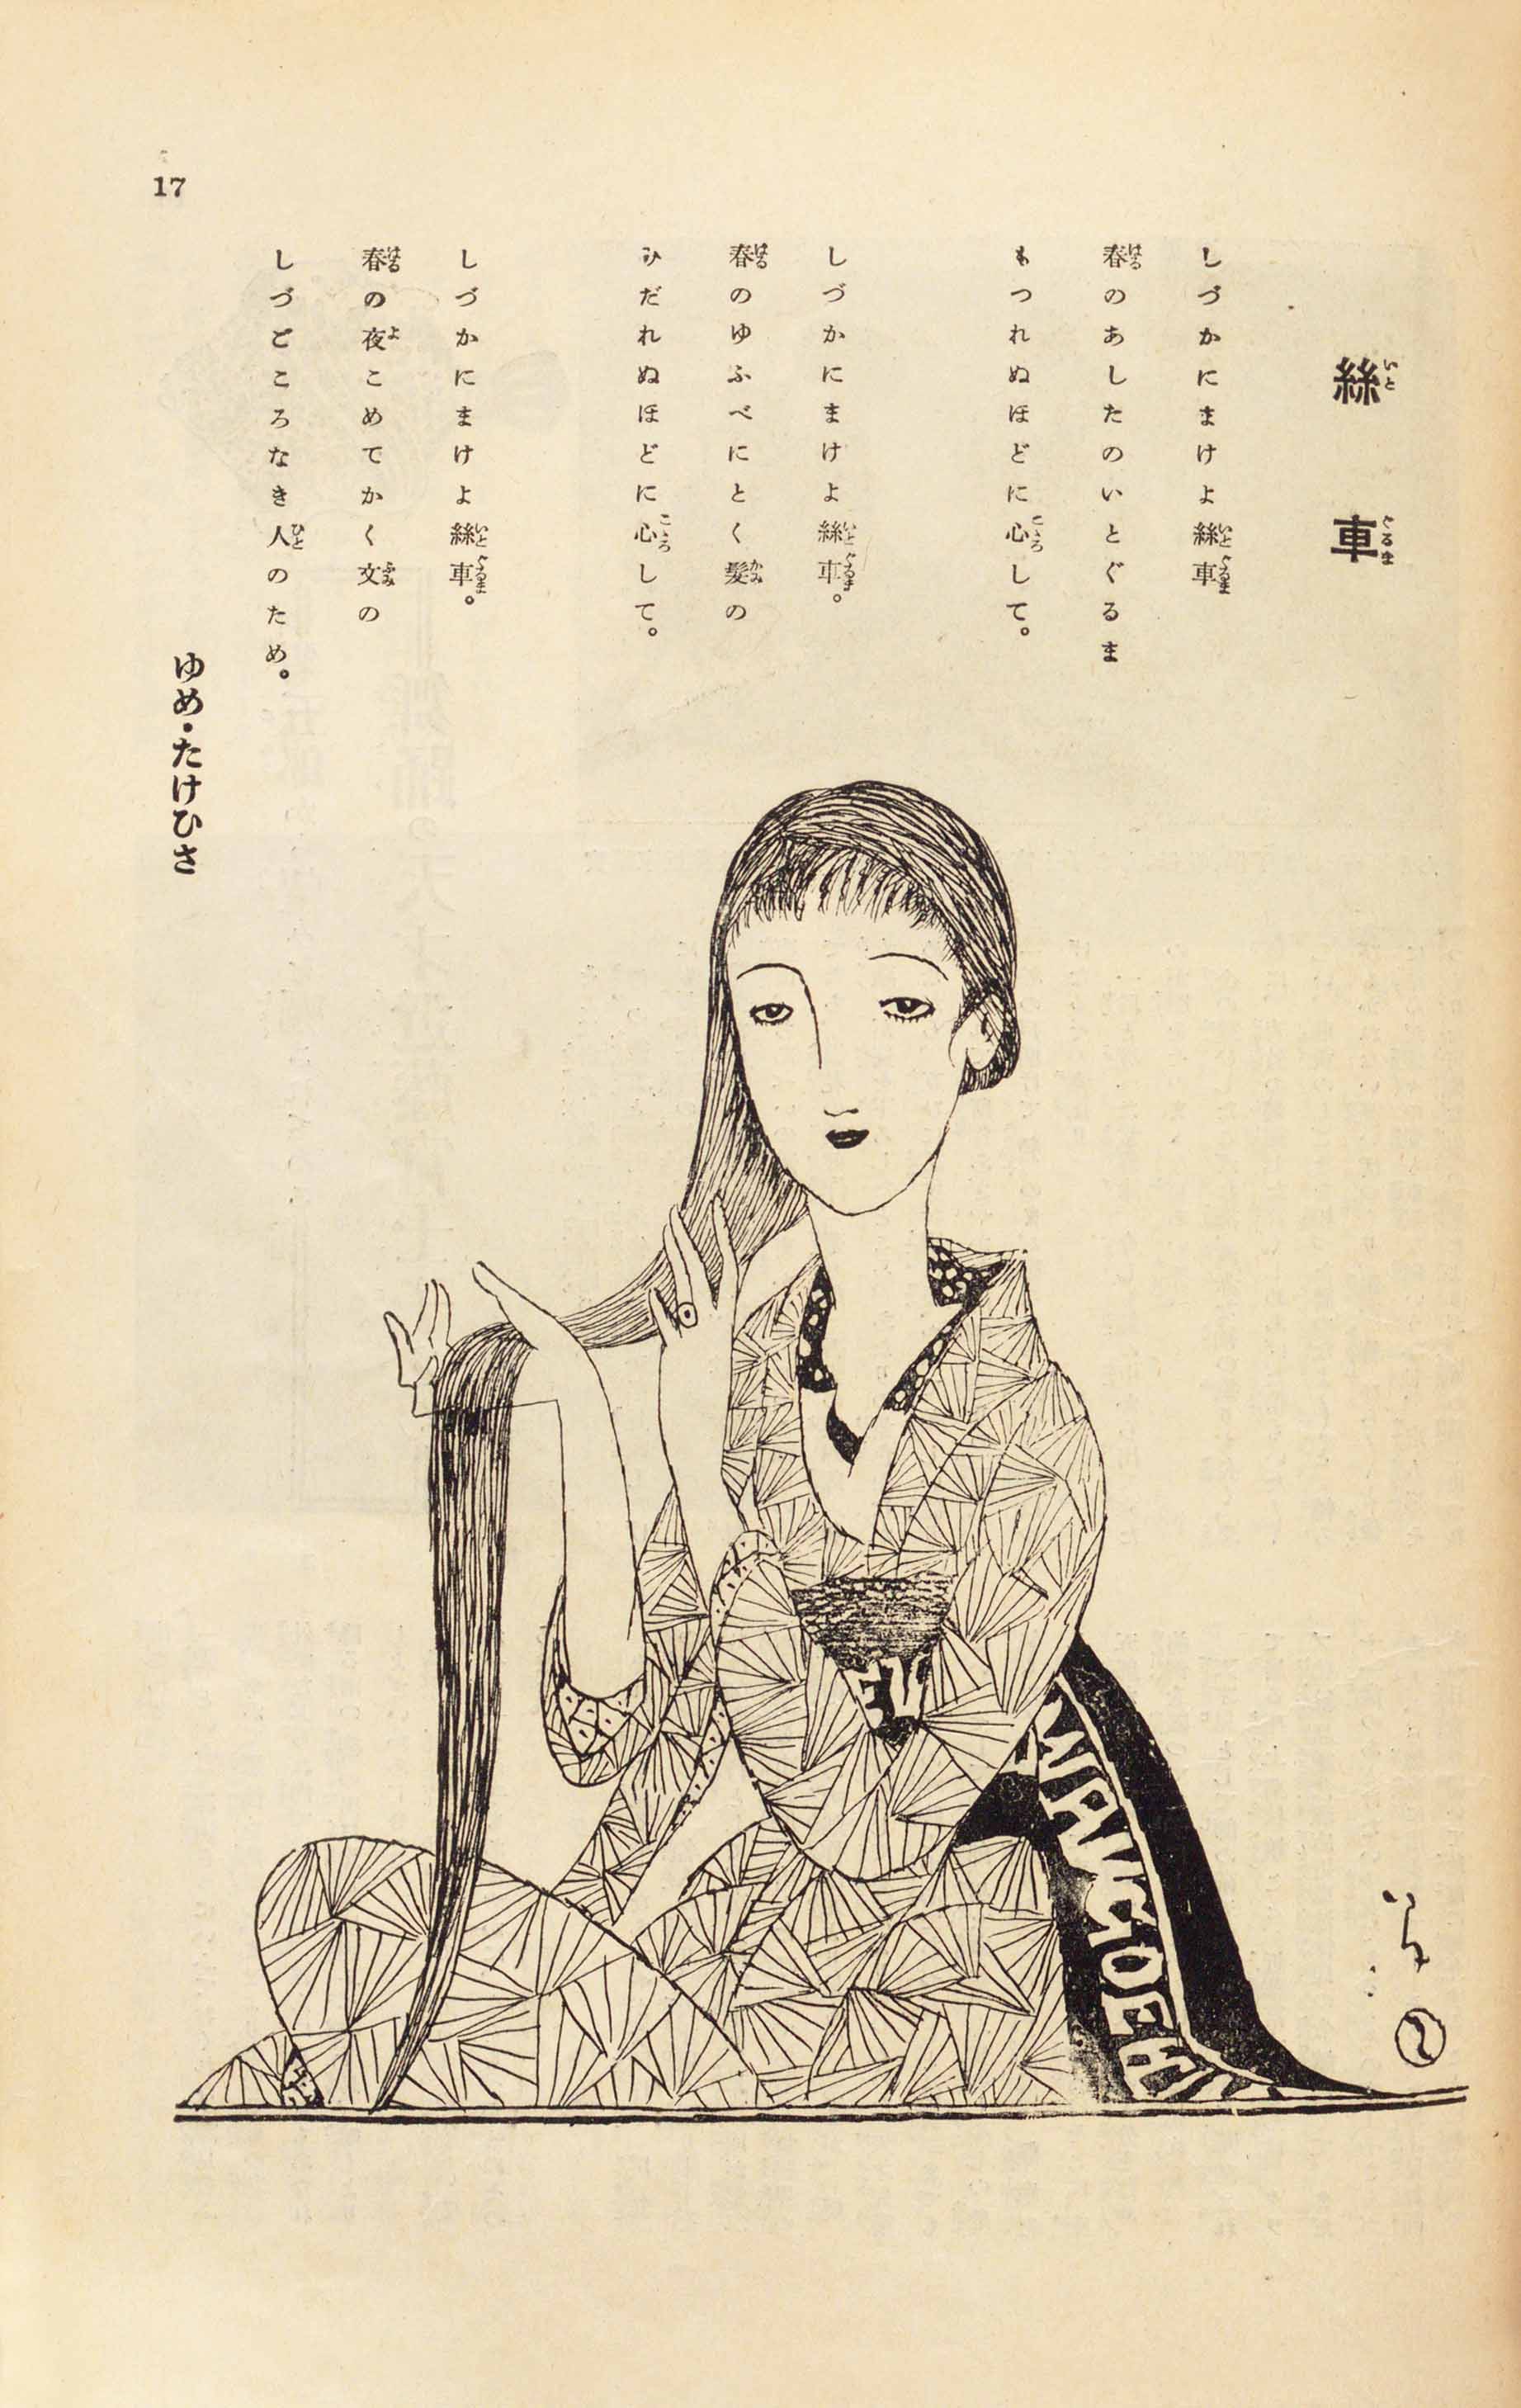 絲車
しづかにまけよ絲車
春のあしたのいとぐるま
もつれぬほどに心して。
しづかにまけよ絲車。
春のゆふべにとく髪の
ひだれぬほどに心して。
しづかにまけよ絲車。
春の夜こめてかく文の
しづごころなき人のため。
ゆめ・たけひさ
17